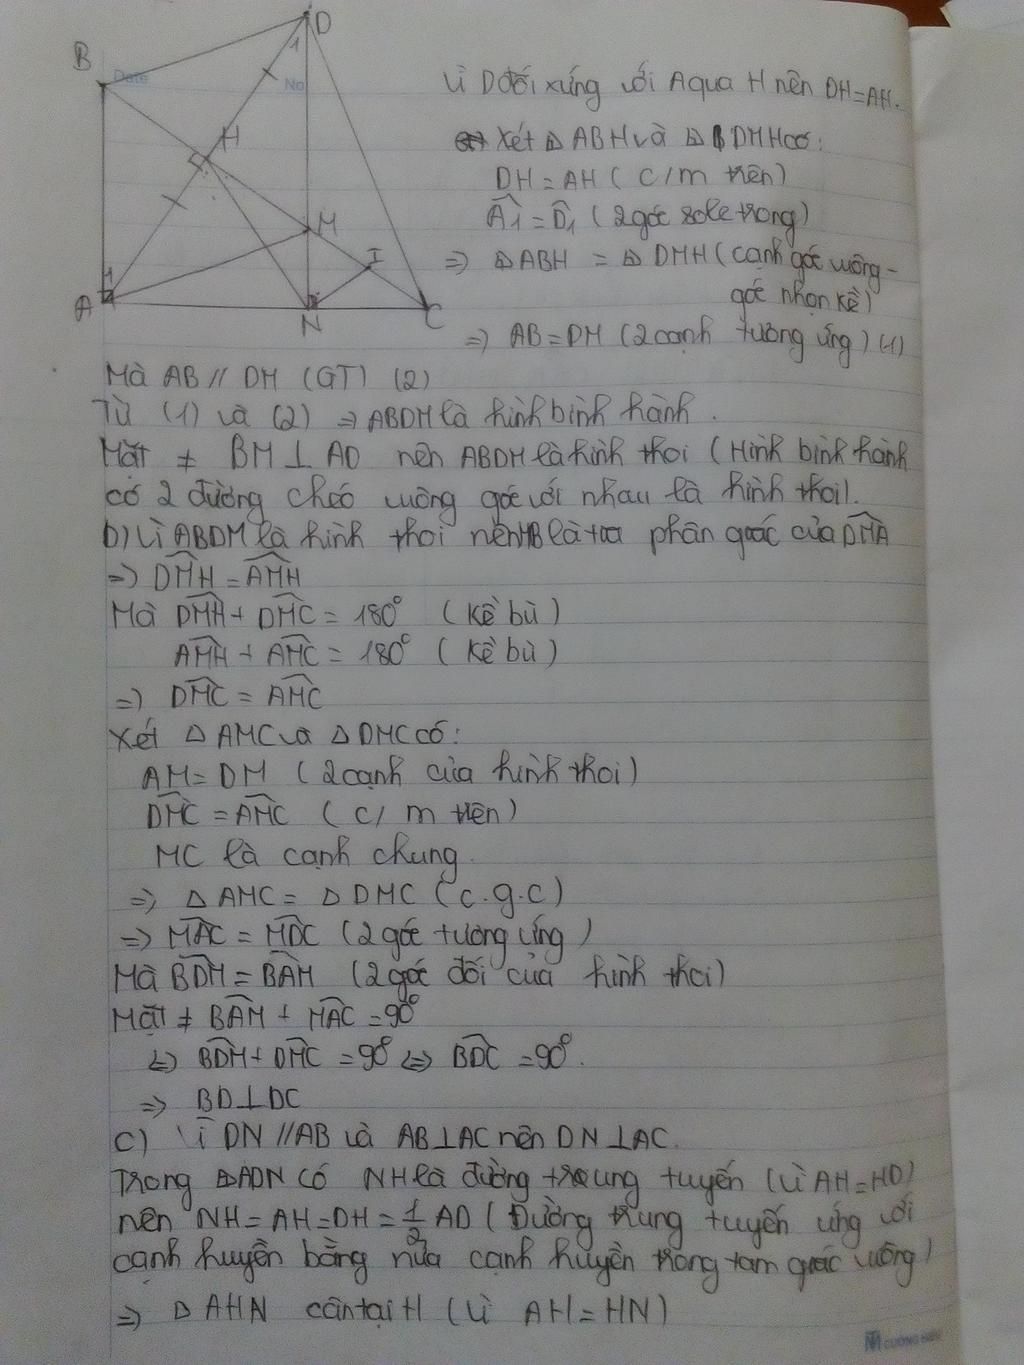 D
B
1
Date
No
H
M
I
1
A
N
C
Vì D đối xứng với A qua H nên DH=AH.
Xét △ ABH và △ DMH có:
DH = AH ( c/m trên)
Â1 = D̂1 (2 góc sole trong)
=> △ ABH = △ DMH (cạnh góc vuông-
góc nhọn kề)
=> AB = DM (2 cạnh tương ứng) (1)
Mà AB // DM (GT) (2)
Từ (1) và (2) => ABDM là hình bình hành.
Mặt ≠ BM ⊥ AD nên ABDM là hình thoi (Hình bình hành
có 2 đường chéo vuông góc với nhau là hình thoi).
b) Vì ABDM là hình thoi nên MB là tia phân giác của DMA
=> DMH = AMH
Mà DMH + DMC = 180° (kề bù)
AMH + AMC = 180° (kề bù)
=> DMC = AMC
Xét △ AMC và △ DMC có:
AM = DM (2 cạnh của hình thoi)
DMC = AMC ( c/m trên)
MC là cạnh chung.
=> △ AMC = △ DMC (c.g.c)
=> MAC = MDC (2 góc tương ứng)
Mà BDM = BAM (2 góc đối của hình thoi)
Mặt ≠ BAM + MAC = 90°
<=> BDM + DMC = 90° <=> BDC = 90°.
=> BD ⊥ DC
C) Vì DN // AB và AB ⊥ AC nên DN ⊥ AC.
Trong △ADN có NH là đường trung tuyến (vì AH = HD)
nên NH = AH = DH = 1/2 AD (Đường trung tuyến ứng với
cạnh huyền bằng nửa cạnh huyền trong tam giác vuông)
=> △ AHN cân tại H (vì AH = HN)